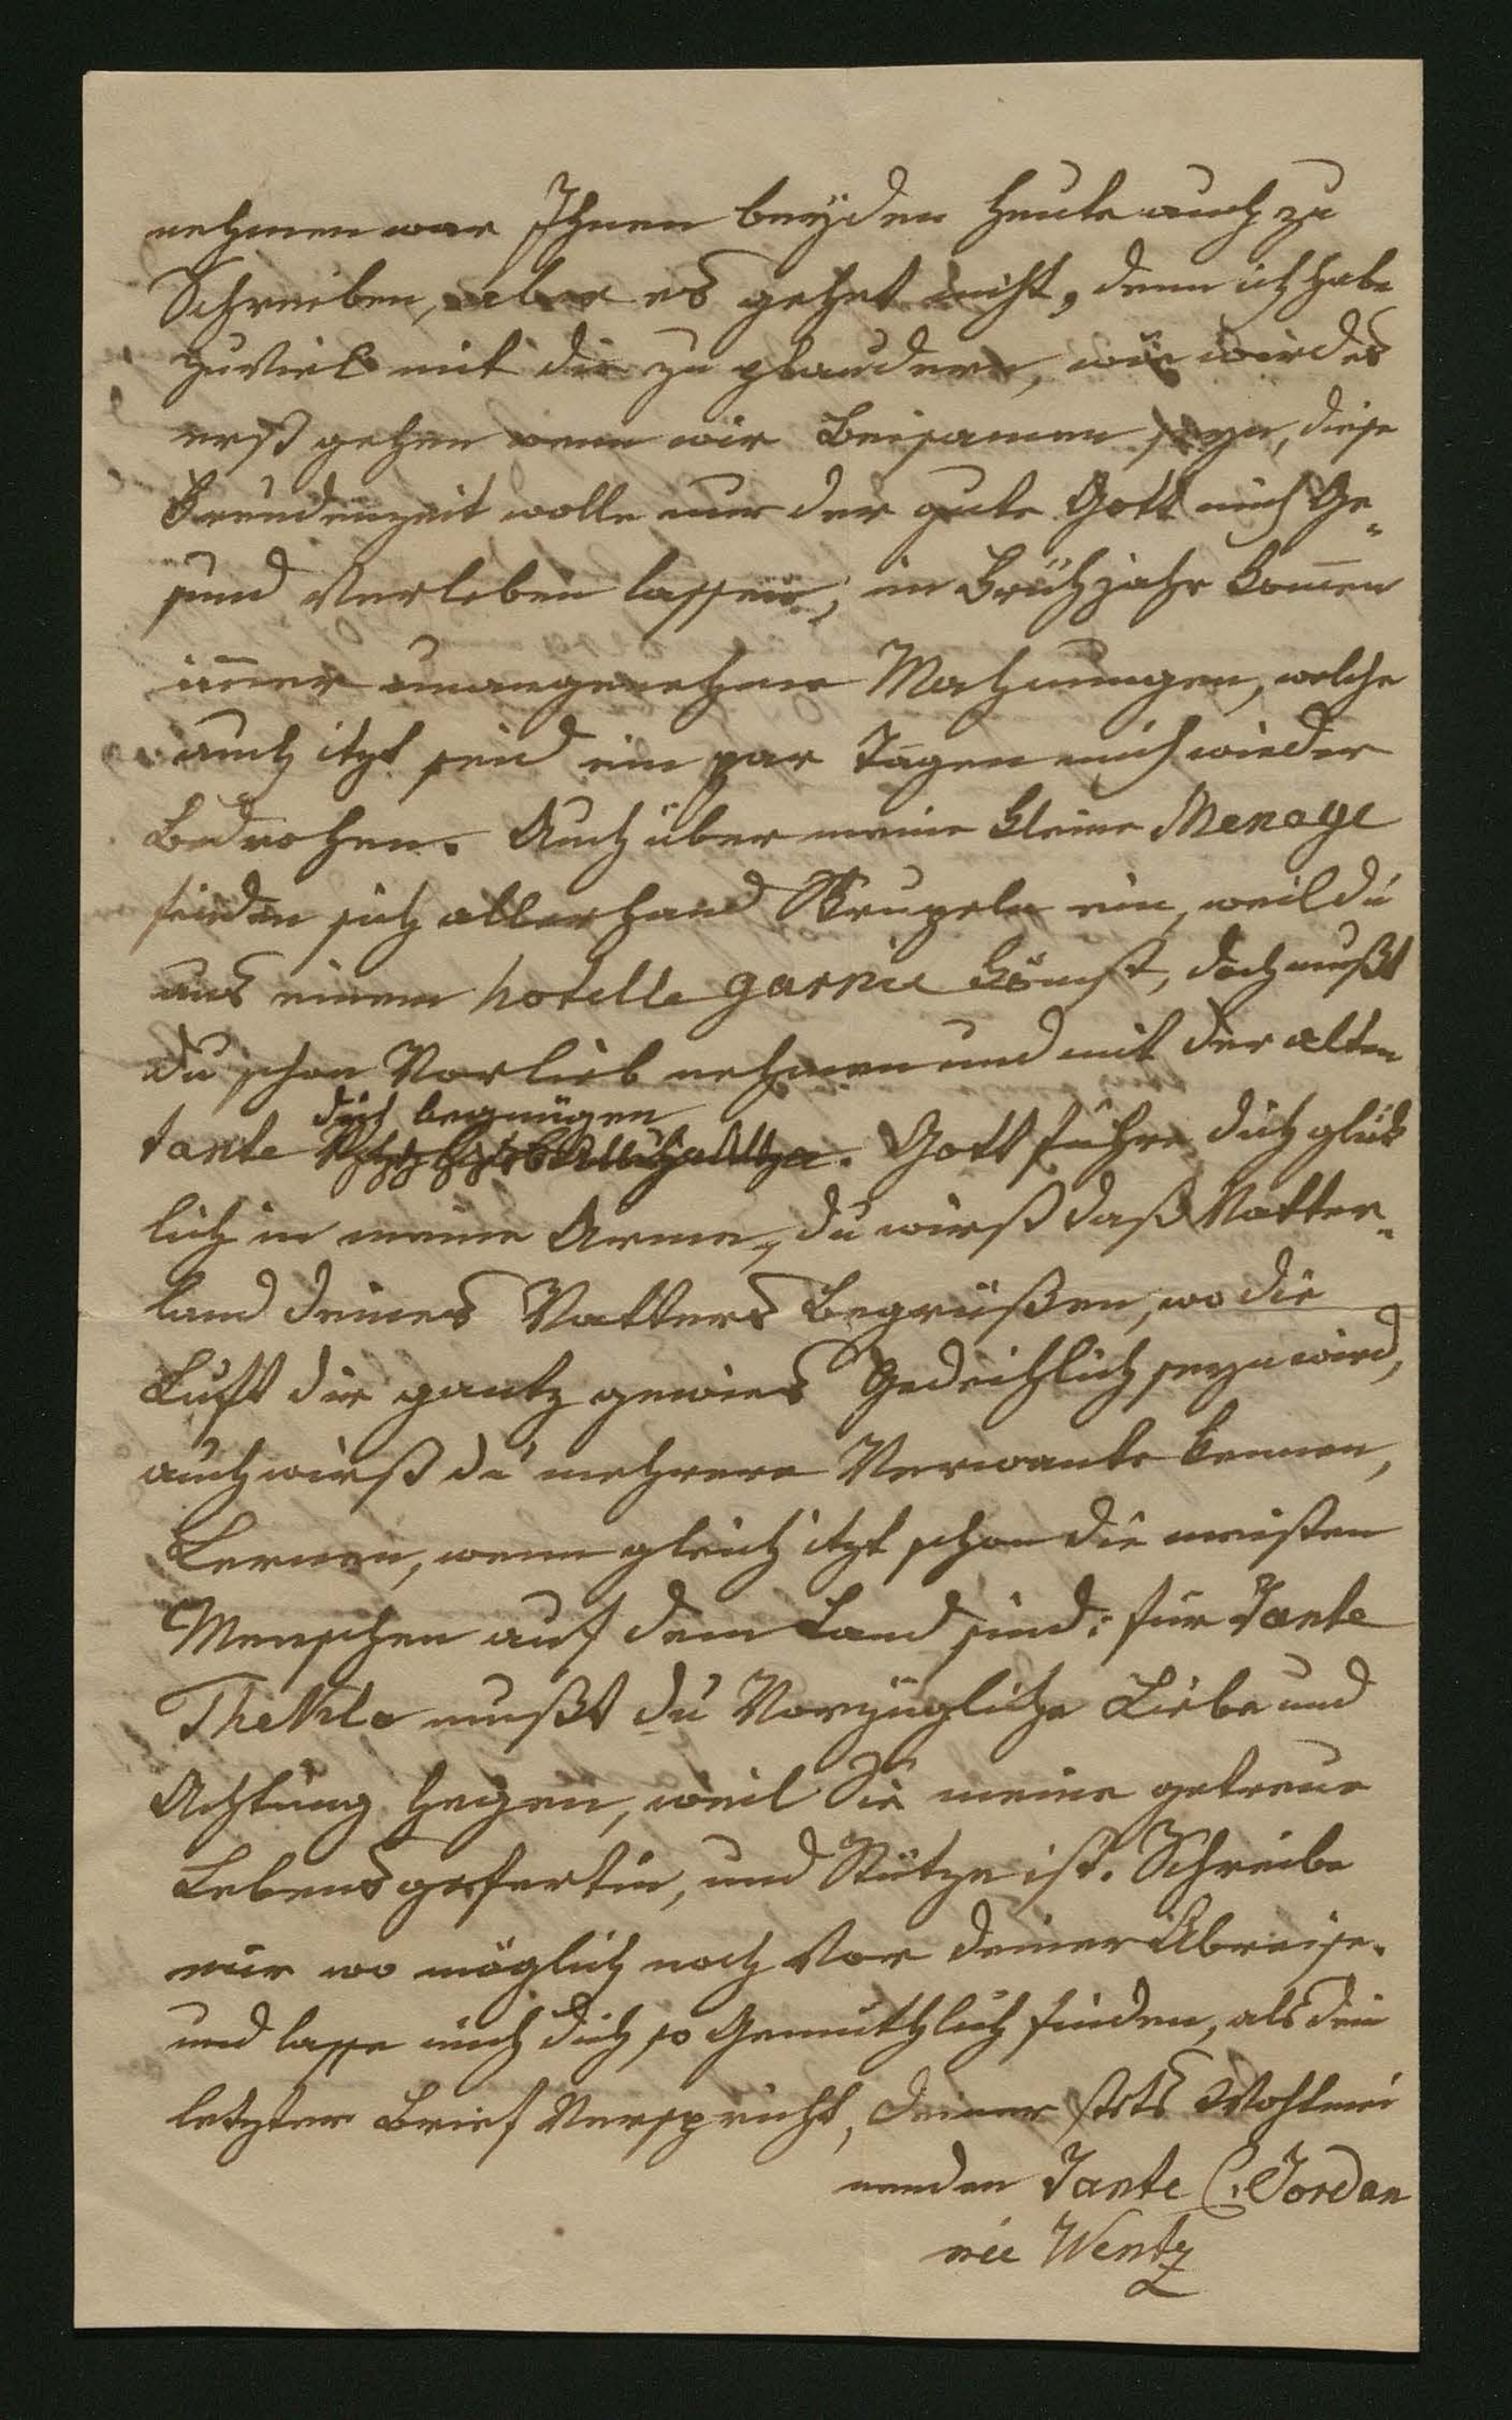 nehmen war Ihnen beÿden heute auch zu
Schreiben, aber es gehet nicht, denn ich habe
zuviel mit dir zu plaudern, wie wird es
erst gehen wenn wir Beisamen seyn, diese
Freudenzeit wolle nur der gute Gott mich Ge„
sund Verleben lassen, im Frühjahr komen
imer unangenehme Mahnungen, welche
auch itzt seid ein par Tagen mich wieder
Bedrohen. Auch über meine kleine Menage
finden sich allerhand Skrupeln ein, weil du
aus einem hotelle garnie kömst, doch mußt
du schon Vorlieb nehmen und mit der alten
dich begnügen
tante . Gott führe dich glük
lich in meine Arme, du wirst daß Vatter„
land deines Vatters Begrüßen, wo die
Luft dir gantz gewies Gedeihlich seyn wird,
auch wirst du mehrere Verwante kennen,
Lernen, wenn gleich itzt schon die meisten
Menschen auf dem Land sind: für Tante
Thekla mußt du Vorzügliche Liebe und
Achtung hegen, weil Sie meine getreue
Lebensgefertin, und Stütze ist. Schreibe
mir wo möglich noch Vor deiner Abreise.
und lasse mich dich so Gemüthlich finden, als dein
letzter Brief Verspricht, deiner stets Wohlmei
nenden Tante C. Jordan
née Wentz